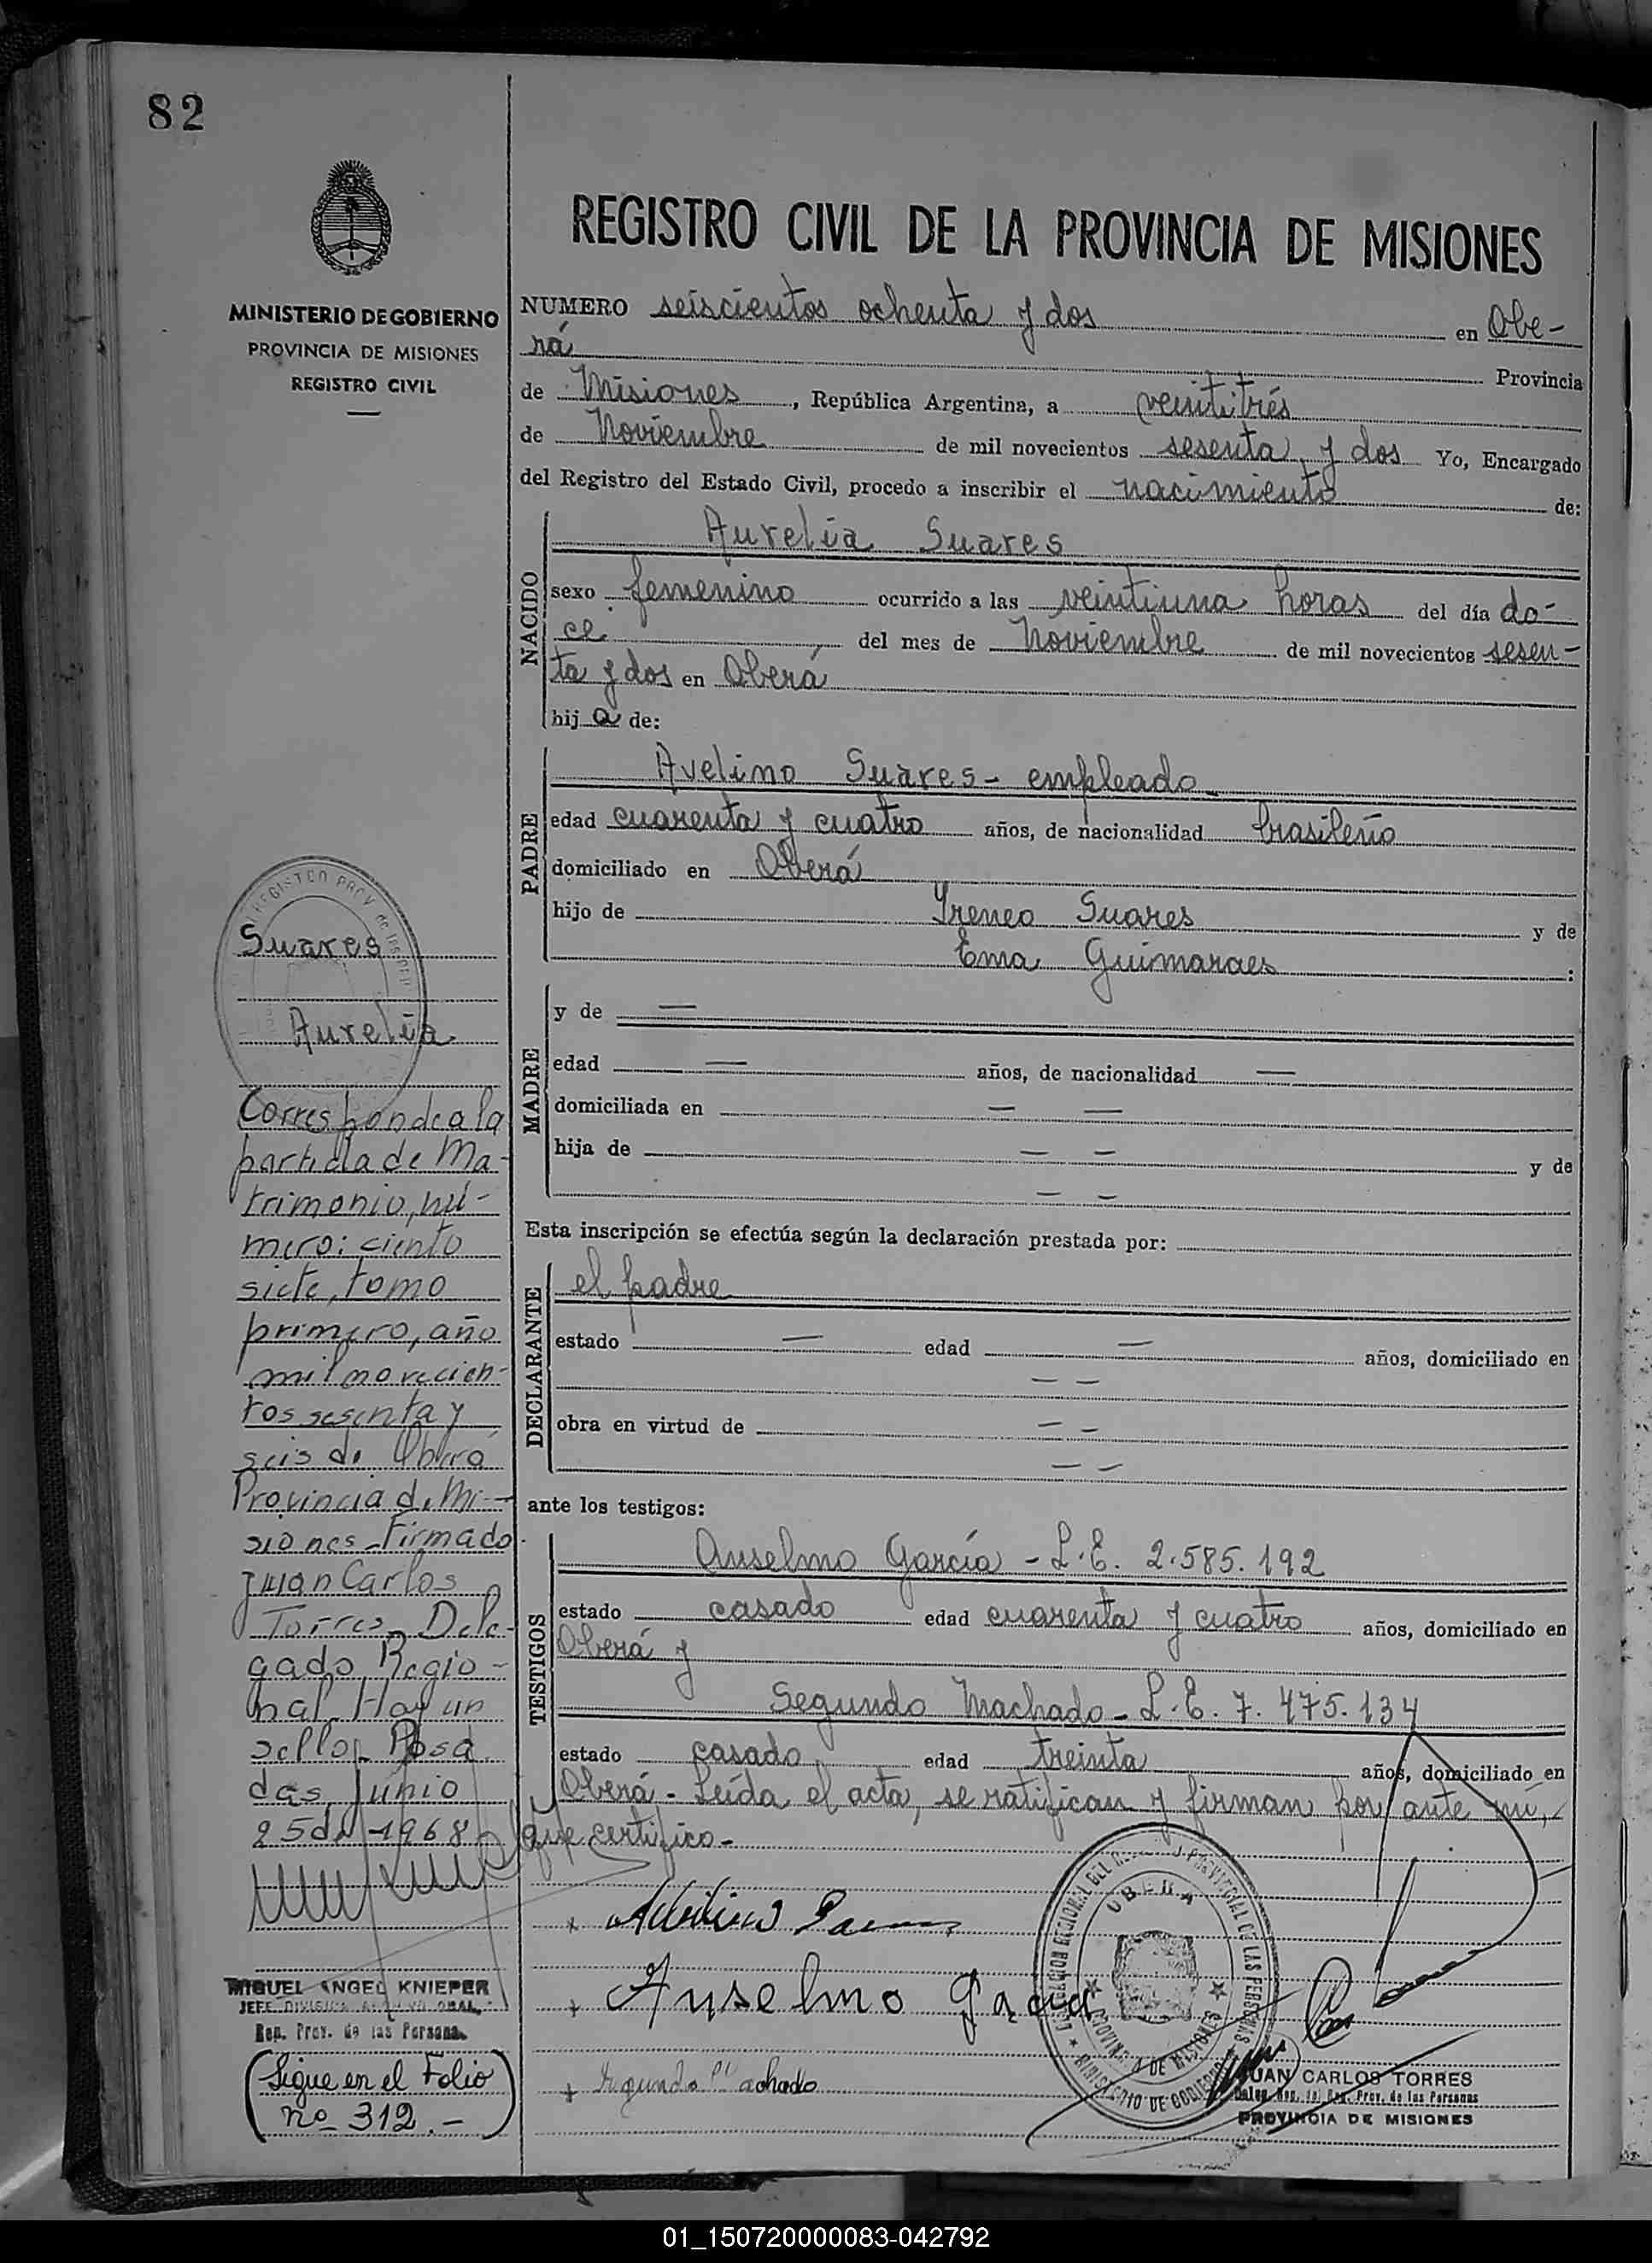 82
MINISTERIO DE GOBIERNO
PROVINCIA DE MISIONES
REGISTRO CIVIL
REGISTRO CIVIL DE LA PROVINCIA DE MISIONES
NUMERO seiscientos ochenta y dos en Obe-
rá Provincia
de Misiones, República Argentina, a veintitrés
de Noviembre de mil novecientos sesenta y dos Yo, Encargado
del Registro del Estado Civil, procedo a inscribir el nacimiento de:
NACIDO
Aurelia Suares
sexo femenino ocurrido a las veintiuna horas del día do-
ce del mes de Noviembre de mil novecientos sesen-
ta y dos en Oberá
hij a de:
PADRE
Avelino Suares - empleado -
edad cuarenta y cuatro años, de nacionalidad brasileño
domiciliado en Oberá
hijo de Ireneo Suares y de
Ema Guimaraes :
MADRE
y de —
edad — años, de nacionalidad —
domiciliada en — —
hija de — — y de
— —
Esta inscripción se efectúa según la declaración prestada por:
DECLARANTE
el padre
estado — edad — años, domiciliado en
— —
obra en virtud de — -
— —
ante los testigos:
TESTIGOS
Anselmo García - L.E. 2.585.192
estado casado edad cuarenta y cuatro años, domiciliado en
Oberá y
Segundo Machado - L.E. 7.475.134
estado casado edad treinta años, domiciliado en
Oberá - Leída el acta, se ratifican y firman por ante mí,
que certifico -
Anselmo Garcia
Segundo Machado
OBERA
JUAN CARLOS TORRES
Deleg. Reg. del Reg. Prov. de las Personas
PROVINCIA DE MISIONES
Suares
Aurelia
Corresponde a la
partida de Ma-
trimonio, nú-
mero: ciento
siete, tomo
primero, año
mil novecien-
tos sesenta y
seis de Oberá
Provincia de Mi-
siones - Firmado
Juan Carlos
Torres - Dele-
gado Regio-
nal. Hay un
sello - Posa
das, Junio
25 de 1968
MIGUEL ANGEL KNIEPER
JEFE DIVISION ARCHIVO GRAL.
Reg. Prov. de las Personas
(Sigue en el Folio
nº 312. -)
01_150720000083-042792